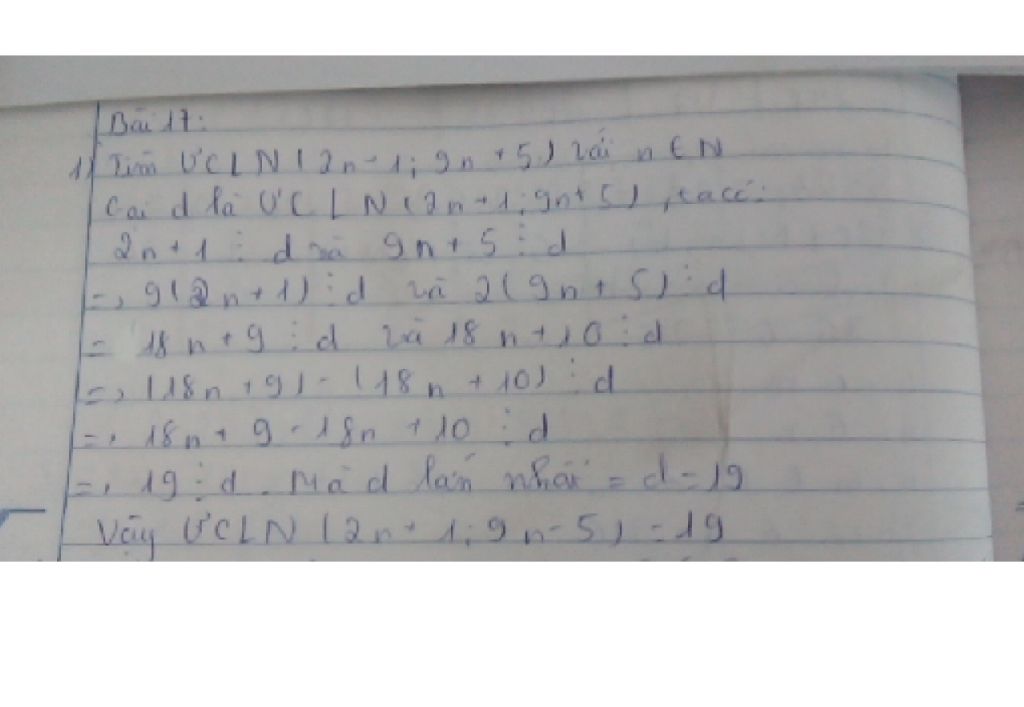 Bài 17:
1) Tìm ƯCLN (2n - 1; 9n + 5) với n ∈ N
Gọi d là ƯCLN (2n + 1; 9n + 5), ta có:
2n + 1 ⋮ d và 9n + 5 ⋮ d
=> 9(2n + 1) ⋮ d và 2(9n + 5) ⋮ d
= 18n + 9 ⋮ d và 18n + 10 ⋮ d
=> (18n + 9) - (18n + 10) ⋮ d
=> 18n + 9 - 18n + 10 ⋮ d
=> 19 ⋮ d. Mà d lớn nhất = d = 19
Vậy ƯCLN (2n + 1; 9n - 5) = 19